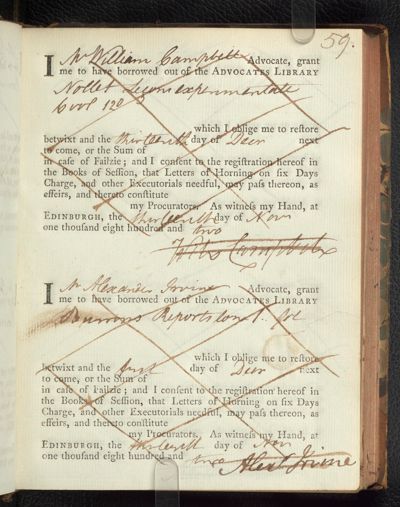 59.
I Mr William Campbell Advocate, grant
me to have borrowed out of the ADVOCATES LIBRARY
Nollet Leçons experimentale
6 vol 12º
which I oblige me to restore
betwixt and the thirteenth day of Decr next
to come, or the Sum of
in case of Failzie; and I consent to the registration hereof in
the Books of Session, that Letters of Horning on six Days
Charge, and other Executorials needful, may pass thereon, as
effeirs, and thereto constitute
my Procurators. As witness my Hand, at
EDINBURGH, the thirteenth day of Novr
one thousand eight hundred and two
Campbell
I Mr Alexander Irvine Advocate, grant
me to have borrowed out of the ADVOCATES LIBRARY
Reports
which I oblige me to restore
betwixt and the first day of Decr next
to come, or the Sum of
in case of Failzie; and I consent to the registration hereof in
the Books of Session, that Letters of Horning on six Days
Charge, and other Executorials needful, may pass thereon, as
effeirs, and thereto constitute
my Procurators. As witness my Hand, at
EDINBURGH, the day of Novr
one thousand eight hundred and two
Alexr Irvine